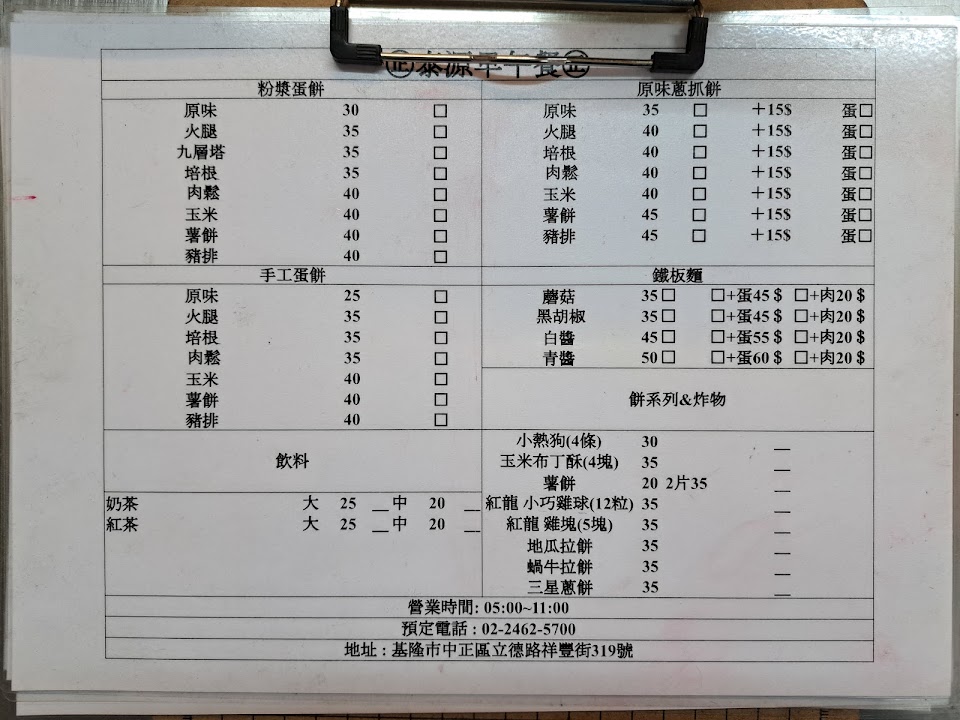 ㊣泰源早午餐㊣
粉漿蛋餅
原味 30 □
火腿 35 □
九層塔 35 □
培根 35 □
肉鬆 40 □
玉米 40 □
薯餅 40 □
豬排 40 □
手工蛋餅
原味 25 □
火腿 35 □
培根 35 □
肉鬆 35 □
玉米 40 □
薯餅 40 □
豬排 40 □
飲料
奶茶 大 25 __中 20 __
紅茶 大 25 __中 20 __
原味蔥抓餅
原味 35 □ +15$ 蛋□
火腿 40 □ +15$ 蛋□
培根 40 □ +15$ 蛋□
肉鬆 40 □ +15$ 蛋□
玉米 40 □ +15$ 蛋□
薯餅 45 □ +15$ 蛋□
豬排 45 □ +15$ 蛋□
鐵板麵
蘑菇 35□ □+蛋45$ □+肉20$
黑胡椒 35□ □+蛋45$ □+肉20$
白醬 45□ □+蛋55$ □+肉20$
青醬 50□ □+蛋60$ □+肉20$
餅系列&炸物
小熱狗(4條) 30 __
玉米布丁酥(4塊) 35 __
薯餅 20 2片35 __
紅龍 小巧雞球(12粒) 35 __
紅龍 雞塊(5塊) 35 __
地瓜拉餅 35 __
蝸牛拉餅 35 __
三星蔥餅 35 __
營業時間: 05:00~11:00
預定電話 : 02-2462-5700
地址 : 基隆市中正區立德路祥豐街319號